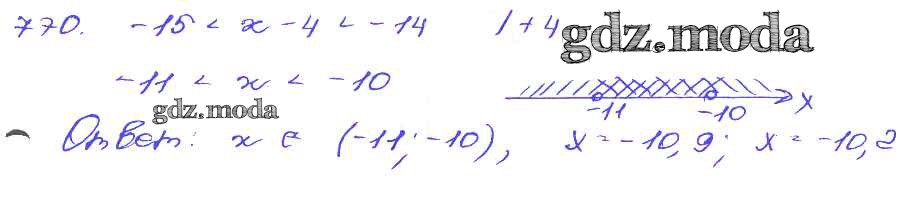 770. -15 < x - 4 < -14 / + 4
gdz.moda
-11 < x < -10
gdz.moda
-11 -10 x
Ответ: x ∈ (-11; -10), x = -10,9; x = -10,2